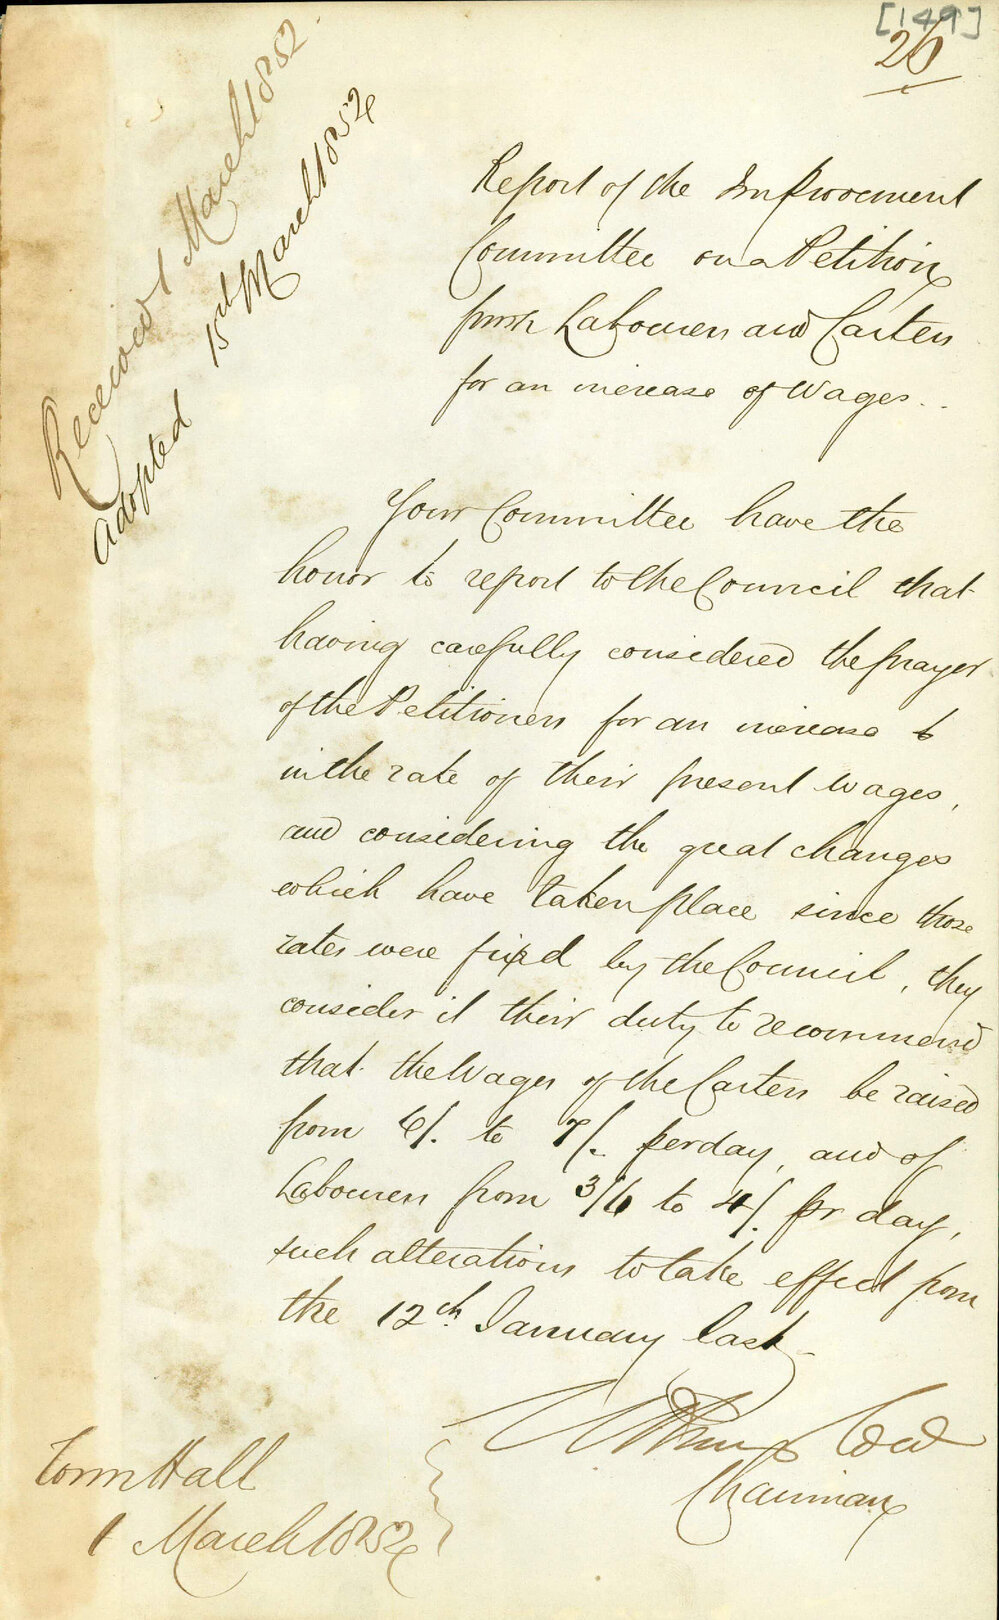 [149]
26
Received 1 March 1852.
Adopted 15th March 1852
Report of the Improvement
Committee on a Petition
from Labourers and Carters
for an increase of Wages.
Your Committee have the
honor to report to the Council that
having carefully considered the prayer
of the Petitioners for an increase to
in the rate of their present wages,
and considering the great changes
which have taken place since those
rates were fixed by the Council, they
consider it their duty to recommend
that the Wages of the Carters be raised
from 6/. to 7/. per day, and of
Labourers from 3/6 to 4/. pr day,
such alterations to take effect from
the 12th January last
Chairman
Town Hall
1 March 1852